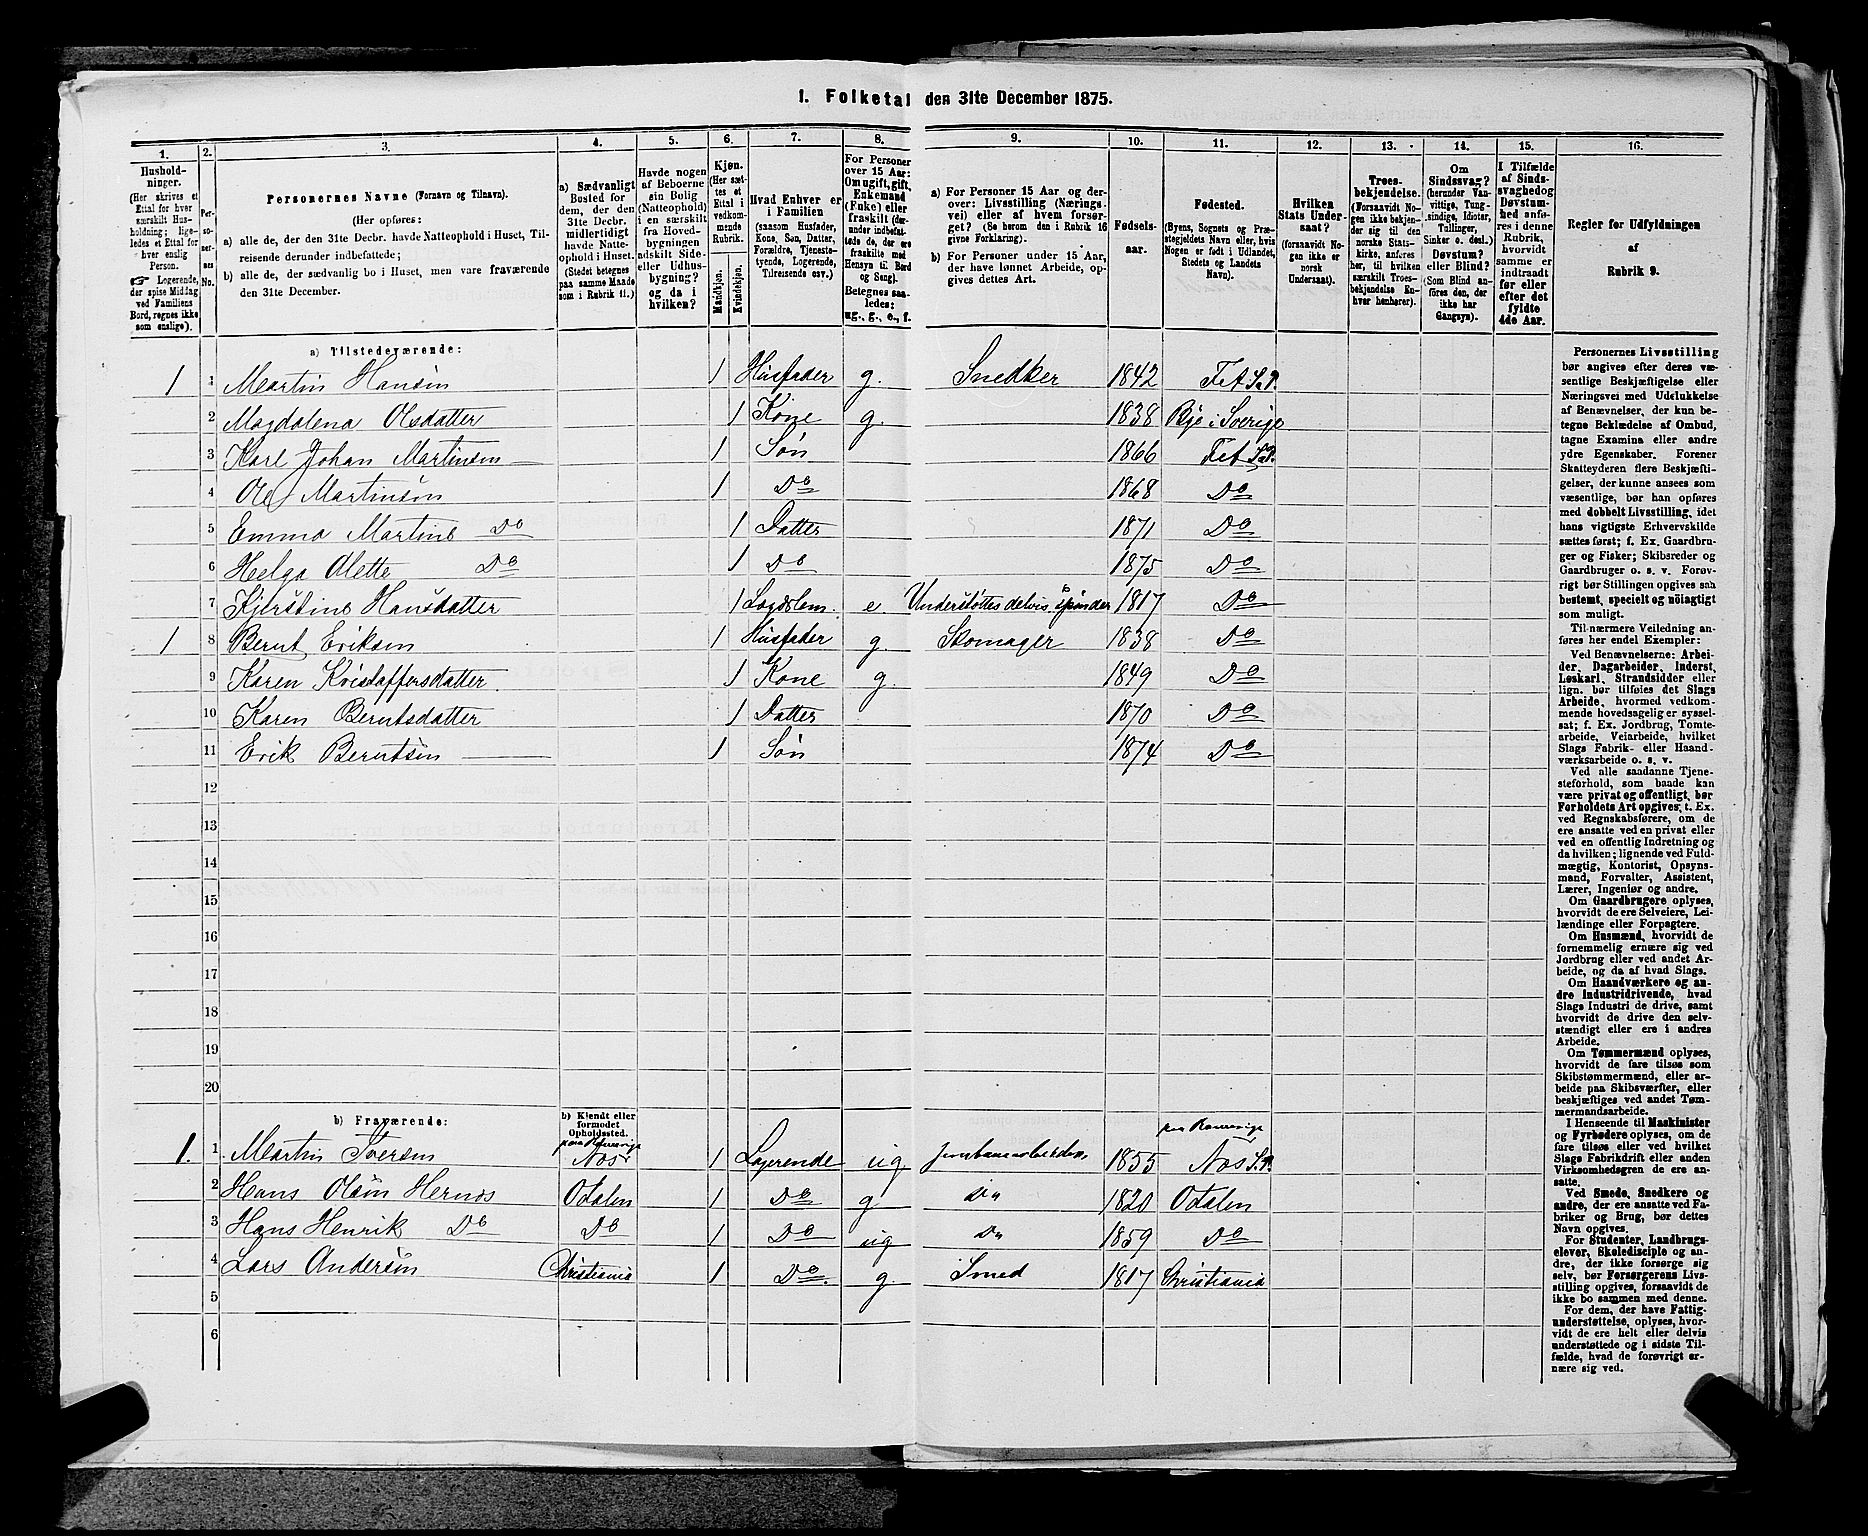 1. Folketal den 31te December 1875.
1. 2. 3. 4. 5. 6. 7. 8. 9. 10. 11. 12. 13. 14. 15. 16.
Hushold-
ninger.
(Her skrives et
Ettal for hver
særskilt Hus-
holdning; lige-
ledes et Ettal for
hver enslig
Person.
☞ Logerende,
der spise Middag
ved Familiens
Bord, regnes ikke
som enslige).
Per-
soner-
nes
No.
Personernes Navne (Fornavn og Tilnavn).
(Her opføres:
a) alle de, der den 31te Decbr. havde Natteophold i Huset, Til-
reisende derunder indbefattede;
b) alle de, der sædvanlig bo i Huset, men vare fraværende
den 31te December.
a) Sædvanligt
Bosted for
dem, der den
31te Decbr.
midlertidigt
havde Natte-
ophold i Huset.
(Stedet betegnes
paa samme Maade
som i Rubrik 11.)
Havde nogen
af Beboerne
sin Bolig
(Natteophold)
i en særskilt
fra Hoved-
bygningen
adskilt Side-
eller Udhus-
bygning?
og da i
hvilken?
Kjøn.
(Her sæt-
tes et
Ettal i
vedkom-
mende
Rubrik.
Mandkjøn.
Kvindekjøn.
Hvad Enhver er
i Familien
(saasom Husfader,
Kone, Søn, Datter,
Forældre, Tjeneste-
tyende, Logerende,
Tilreisende osv.)
For Personer
over 15 Aar:
Om ugift, gift,
Enkemand
(Enke) eller
fraskilt (der-
under indbefat-
tede de, der ere
fraskilte med
Hensyn til Bord
og Seng).
Betegnes saa-
ledes:
ug., g., e., f.
a) For Personer 15 Aar og der-
over: Livsstilling (Nærings-
vei) eller af hvem forsør-
get? (Se herom den i Rubrik 16
givne Forklaring).
b) For Personer under 15 Aar,
der have lønnet Arbeide, op-
gives dettes Art.
Fødsels-
aar.
Fødested.
(Byens, Sognets og Præ-
stegjeldets Navn eller, hvis
Nogen er født i Udlandet,
Stedets og Landets
Navn).
Hvilken
Stats Under-
saat?
(forsaavidt No-
gen ikke er
norsk
Undersaat).
Troes-
bekjendelse.
(Forsaavidt No-
gen ikke bekjen-
der sig til den
norske Stats-
kirke, anføres
her, til hvilken
særskilt Troes-
bekjendelse En-
hver henhører).
Om
Sindssvag?
(herunder Van-
vittige, Tung-
sindige, Idioter,
Tullinger,
Sinker o. desl.)
Døvstum?
eller Blind?
(Som Blind an-
føres den, der
ikke har
Gangsyn).
I Tilfælde
af Sinds-
svaghed og
Døvstum-
hed anfø-
res i denne
Rubrik,
hvorvidt
samme er
indtraadt
før eller
efter det
fyldte
4de Aar.
Regler for Udfyldningen
af
Rubrik 9.
a) Tilstedeværende:
1 1 Martin Hansen 1 Husfader g. Snedker 1842 Fet S.P.
2 Magdalena Olsdatter 1 Kone g. 1838 Bye i Sverige
3 Karl Johan Martinsen 1 Søn 1866 Fet S.P.
4 Ole Martinsøn 1 Do 1868 Do
5 Emma Martine Do 1 Datter 1871 Do
6 Helga Olette Do 1 Do 1875 Do
7 Kjerstine Hansdatter 1 Lægdslem. e Understøttes delvis, spinder 1817 Do
1 8 Bernt Eriksen 1 Husfader g. Skomager 1838 Do
9 Karen Kristoffersdatter. 1 Kone g. 1849 Do
10 Karen Berntsdatter 1 Datter 1870 Do
11 Erik Berntsen 1 Søn 1874 Do
12
13
14
15
16
17
18
19
20
b) Fraværende:
b) Kjendt eller
formodet
Opholdssted.
1. 1 Martin Iversen Næs 1 Logerende ug. Jernbanearbeider 1855 Næs S.P.
2 Hans Olsen Hernæs Odalen 1 Do g Do 1820 Odalen
3 Hans Henrik Do Do 1 Do ug Do 1859 Do
4 Lars Andersøn Christiania 1 Do. g. Smed 1817 Christiania
5
6
Personernes Livsstilling
bør angives efter deres væ-
sentlige Beskjæftigelse eller
Næringsvei med Udelukkelse
af Benævnelser, der kun be-
tegne Beklædelse af Ombud,
tagne Examina eller andre
ydre Egenskaber. Forener
Skatteyderen flere Beskjæfti-
gelser, der kunne ansees som
væsentlige, bør han opføres
med dobbelt Livsstilling, idet
hans vigtigste Erhvervskilde
sættes først; f. Ex. Gaardbru-
ger og Fisker; Skibsreder og
Gaardbruger o. s. v. Forøv-
rigt bør Stillingen opgives saa
bestemt, specielt og nöiagtigt
som muligt.
Til nærmere Veiledning an-
føres her endel Exempler:
Ved Benævnelserne: Arbei-
der, Dagarbeider, Inderst,
Løskarl, Strandsidder eller
lign. bør tilføies det Slags
Arbeide, hvormed vedkom-
mende hovedsagelig er syssel-
sat; f. Ex. Jordbrug, Tomte-
arbeide, Veiarbeide, hvilket
Slags Fabrik- eller Haand-
værksarbeide o. s. v.
Ved alle saadanne Tjene-
steforhold, som baade kan
være privat og offentligt, bør
Forholdets Art opgives, t. Ex.
ved Regnskabsførere, om de
ere ansatte ved en privat eller
ved en offentlig Indretning og
da hvilken; lignende ved Fuld-
mægtig, Kontorist, Opsyns-
mand, Forvalter, Assistent,
Lærer, Ingeniør og andre.
Om Gaardbrugere oplyses,
hvorvidt de ere Selveiere, Lei-
lændinge eller Forpagtere.
Om Husmænd, hvorvidt de
fornemmelig ernære sig ved
Jordbrug eller ved andet Ar-
beide, og da af hvad Slags.
Om Haandværkere og an-
dre industridrivende, hvad
Slags Industri de drive, samt
hvorvidt de drive den selv-
stændigt eller ere i andres
Arbeide.
Om Tømmermænd oplyses,
hvorvidt de fare tilsøs som
Skibstømmermænd, eller ar-
beide paa Skibsværfter, eller
beskjæftiges ved andet Tøm-
mermandsarbeide.
I Henseende til Maskinister
og Fyrbødere oplyses, om de
fare tilsøs eller ved hvilket
Slags Fabrikdrift eller anden
Virksomhedsgren de ere an-
satte.
Ved Smede, Snedkere og
andre, der ere ansatte ved Fa-
briker og Brug, bør dettes
Navn opgives.
For Studenter, Landbrugs-
elever, Skoledisciple og an-
dre, der ikke forsørge sig
selv, bør Forsørgerens Livs-
stilling opgives, forsaavidt de
ikke bo sammen med denne.
For dem, der have Fattig-
understøttelse, oplyses, hvor-
vidt de ere helt eller delvis
understøttede og i sidste Til-
fælde, hvad de forøvrigt er-
nære sig ved.